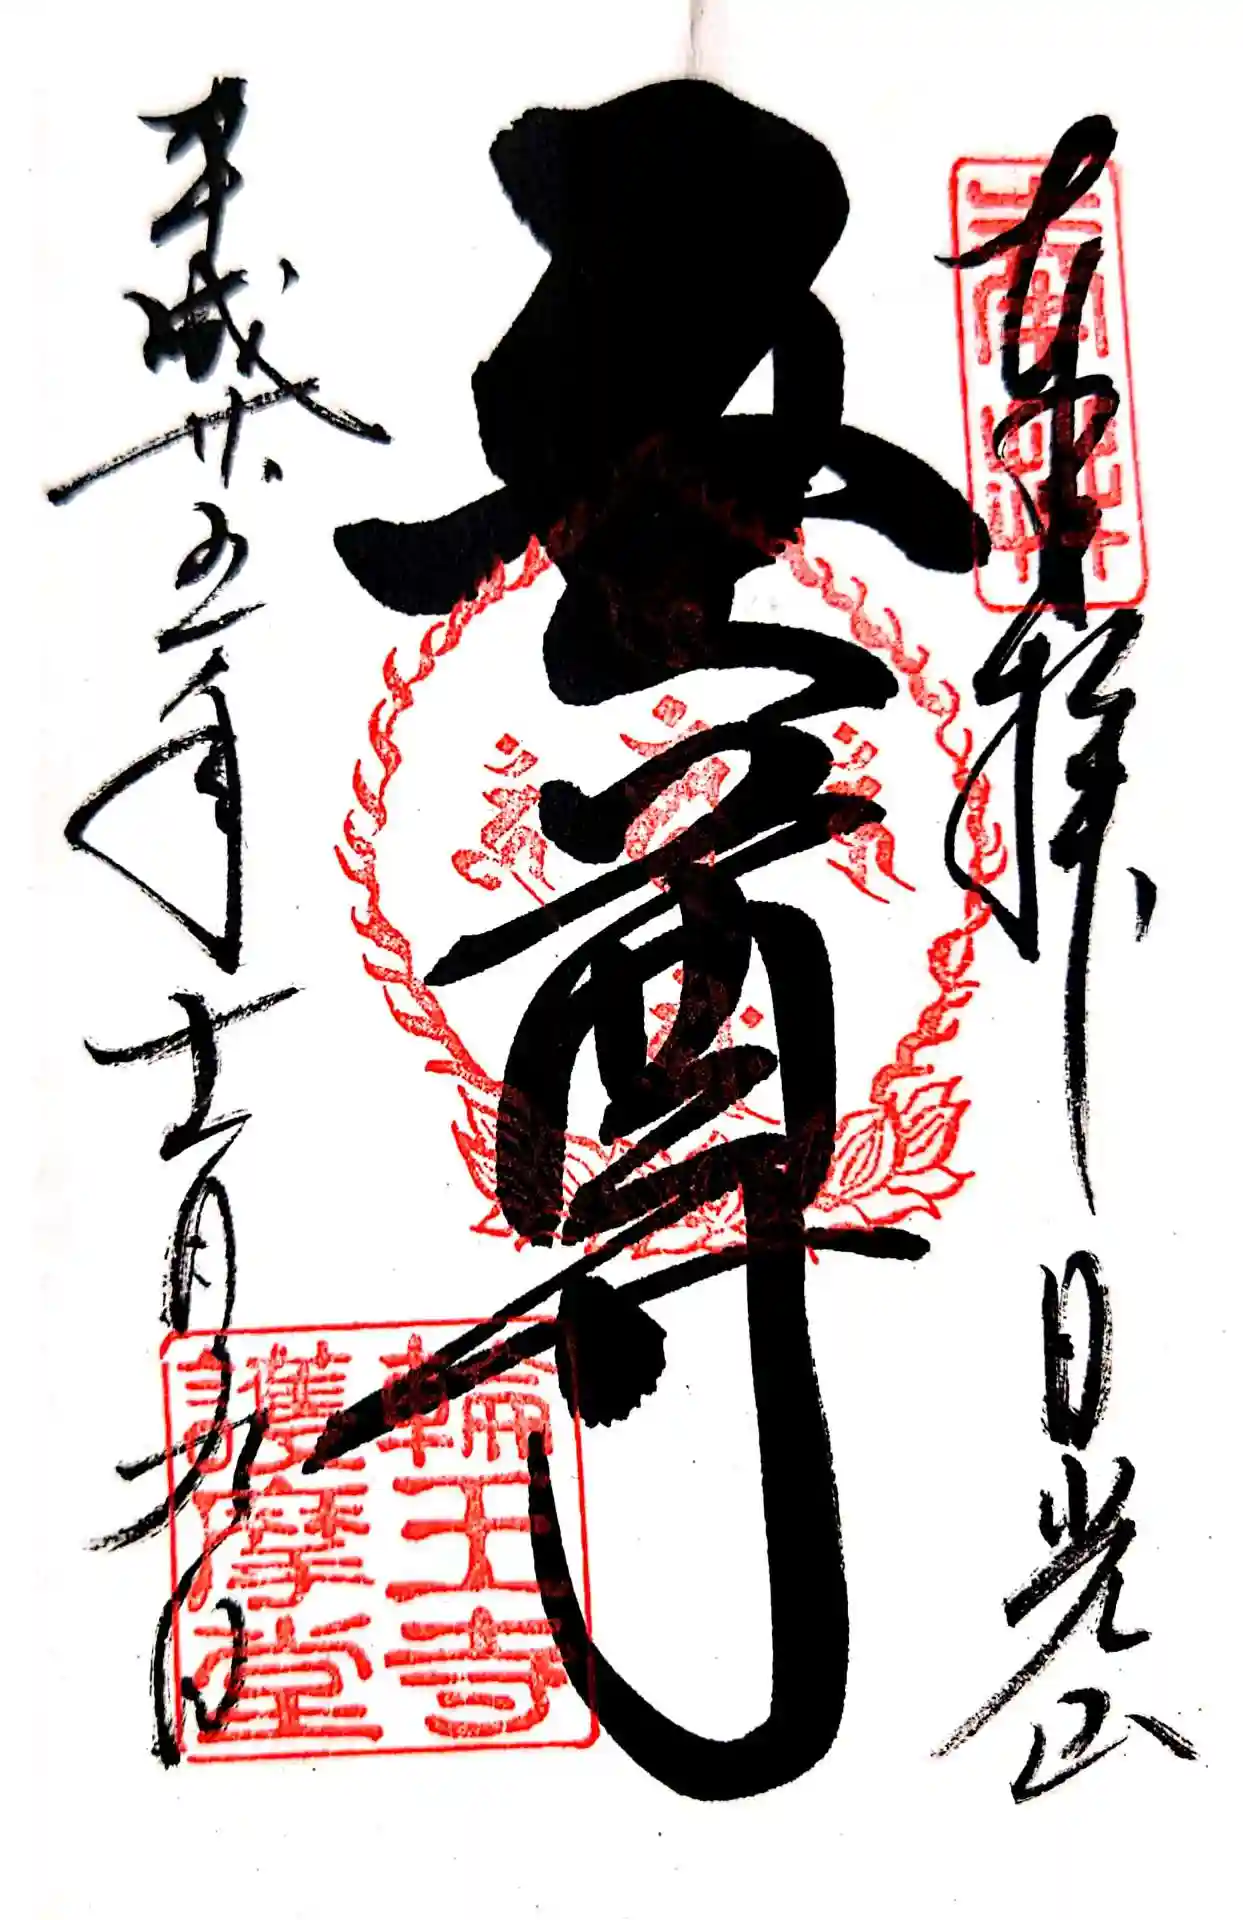 奉拝　日光山
尊
平成廿五年十一月九日
輪王寺
護摩堂